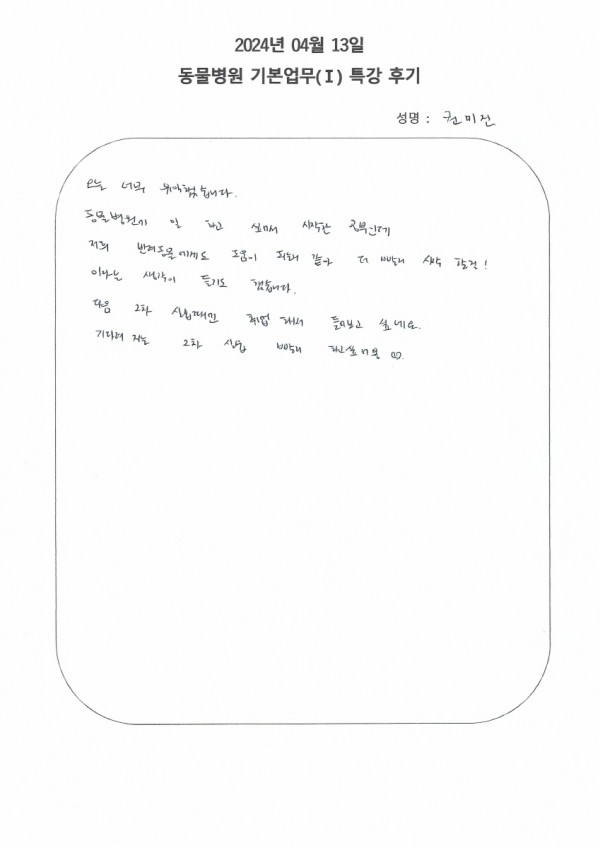 2024년 04월 13일
동물병원 기본업무(I) 특강 후기
성명 : 권미진
오늘 너무 유익했습니다.
동물병원에 일 하고 싶어서 시작한 공부인데
저희 반려동물에게도 도움이 될것 같아 더 빨리 시작 할걸!
이라는 생각이 들기도 했습니다.
다음 2차 실습때만 취업 해서 들어보고 싶네요.
기다려 지는 2차 실습 빨리 하고싶어용